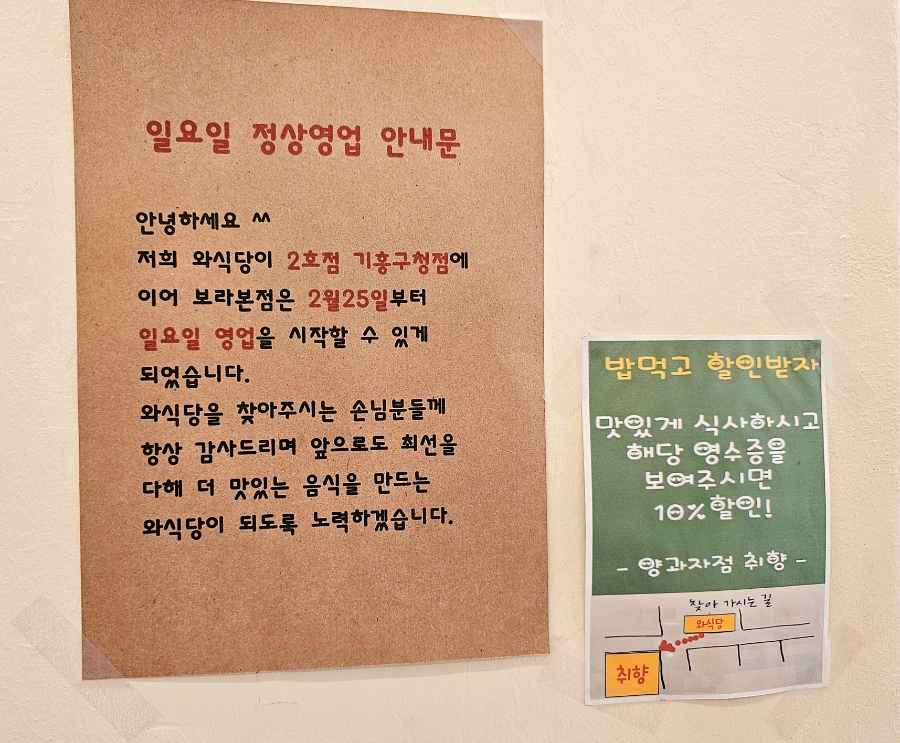 일요일 정상영업 안내문
안녕하세요 ^^
저희 와식당이 2호점 기흥구청점에
이어 보라본점은 2월25일부터
일요일 영업을 시작할 수 있게
되었습니다.
와식당을 찾아주시는 손님분들께
항상 감사드리며 앞으로도 최선을
다해 더 맛있는 음식을 만드는
와식당이 되도록 노력하겠습니다.
밥먹고 할인받자
맛있게 식사하시고
해당 영수증을
보여주시면
10%할인!
- 양과자점 취향 -
찾아 가시는 길
와식당
취향